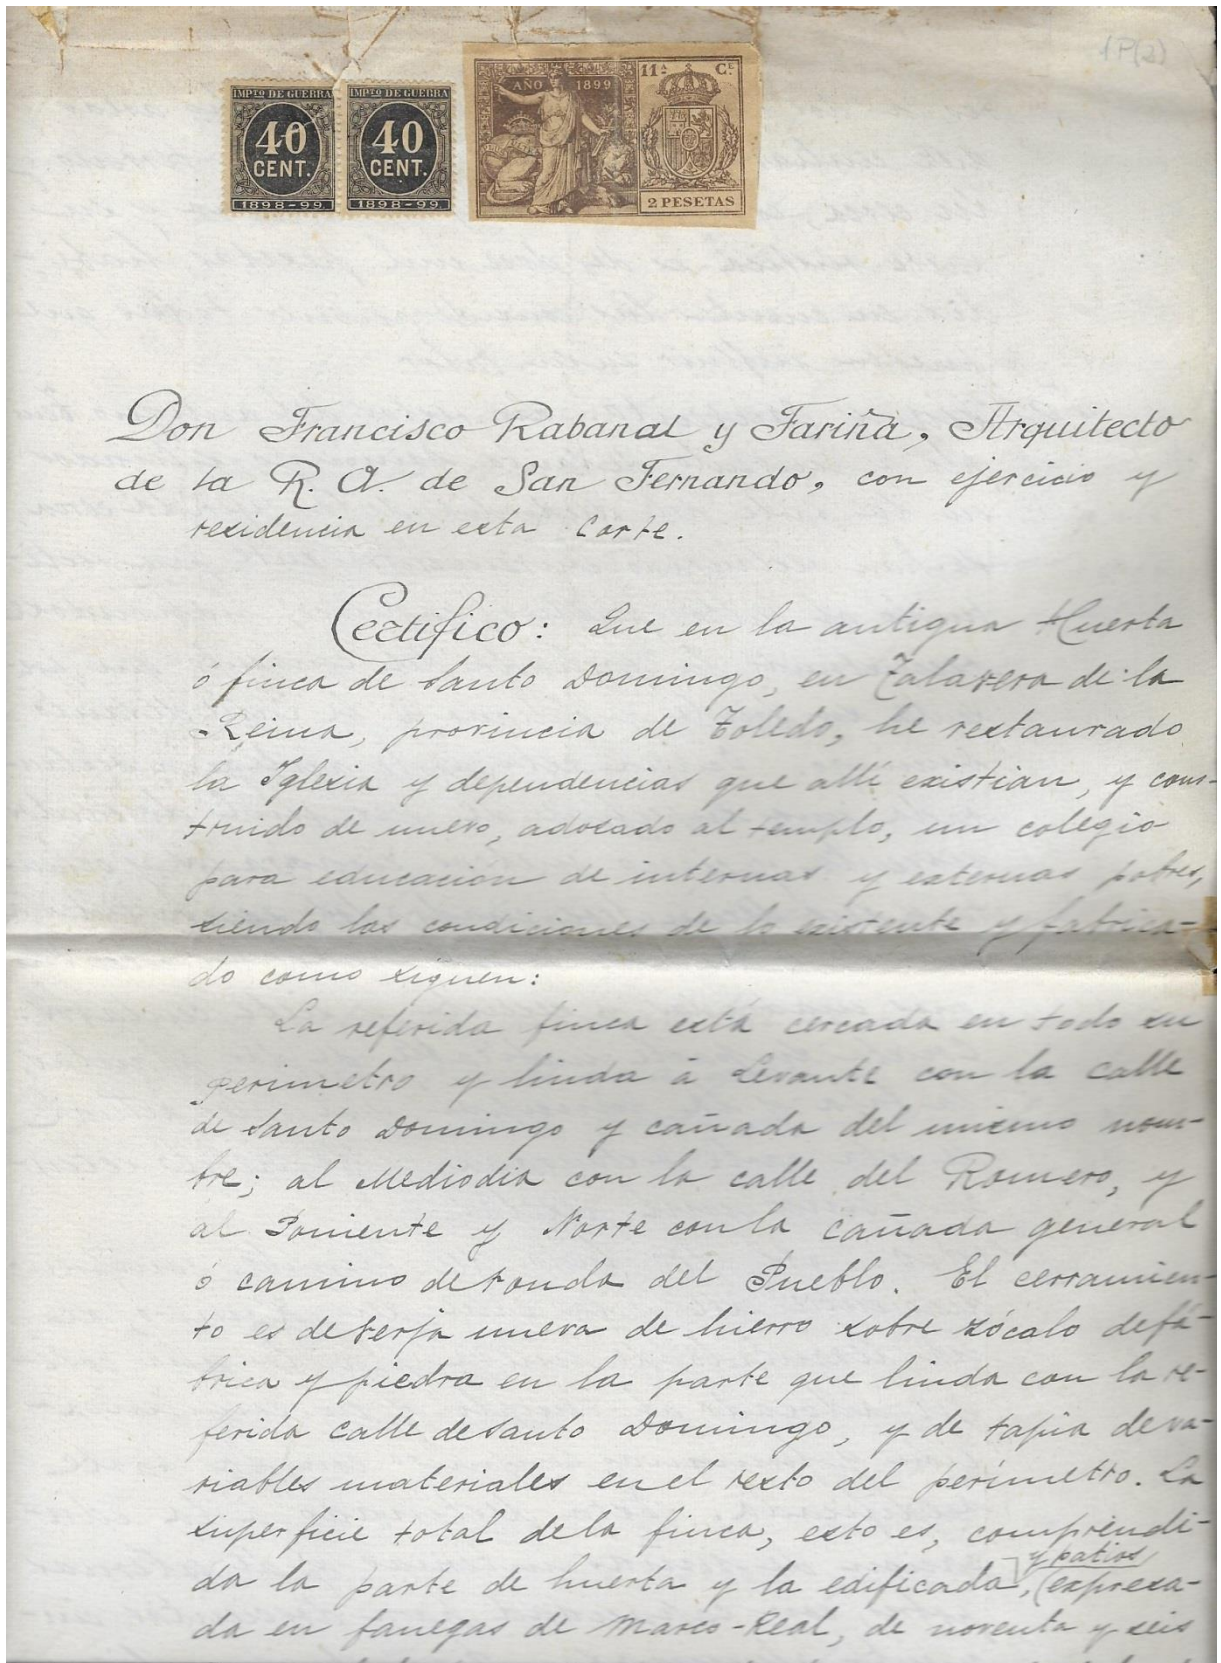 1P(2)
IMPTO DE GUERRA IMPTO DE GUERRA
40 40
CENT. CENT.
1898-99. 1898-99.
AÑO 1899
11ª Cᴱ
2 PESETAS
Don Francisco Rabanal y Fariña, Arquitecto
de la R. A. de San Fernando, con ejercicio y
residencia en esta Corte.
Certifico: Que en la antigua Huerta
ó finca de Santo Domingo, en Talavera de la
Reina, provincia de Toledo, he restaurado
la Iglesia y dependencias que allí existian, y cons-
truido de nuevo, adosado al templo, un colegio
para educación de internas y externas pobres,
siendo las condiciones de lo existente y fabrica-
do como siguen:
La referida finca está cercada en todo su
perimetro y linda á Levante con la calle
de Santo Domingo y cañada del mismo nom-
bre; al Mediodia con la calle del Romero, y
al Poniente y Norte con la cañada general
ó camino de ronda del Pueblo. El cerramien-
to es de verja nueva de hierro sobre zócalo de fá-
brica y piedra en la parte que linda con la re-
ferida calle de Santo Domingo, y de tapia de va-
riables materiales en el resto del perímetro. La
superficie total de la finca, esto es, comprendi-
da la parte de huerta y la edificada, y patios, (expresa-
da en fanegas de Marco-Real, de noventa y seis